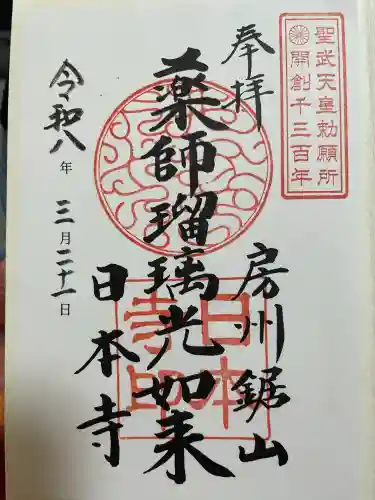 聖武天皇勅願所
開創千三百年
奉拝
房州鋸山
薬師瑠璃光如来
日本寺印
日本寺
令和八年三月二十一日